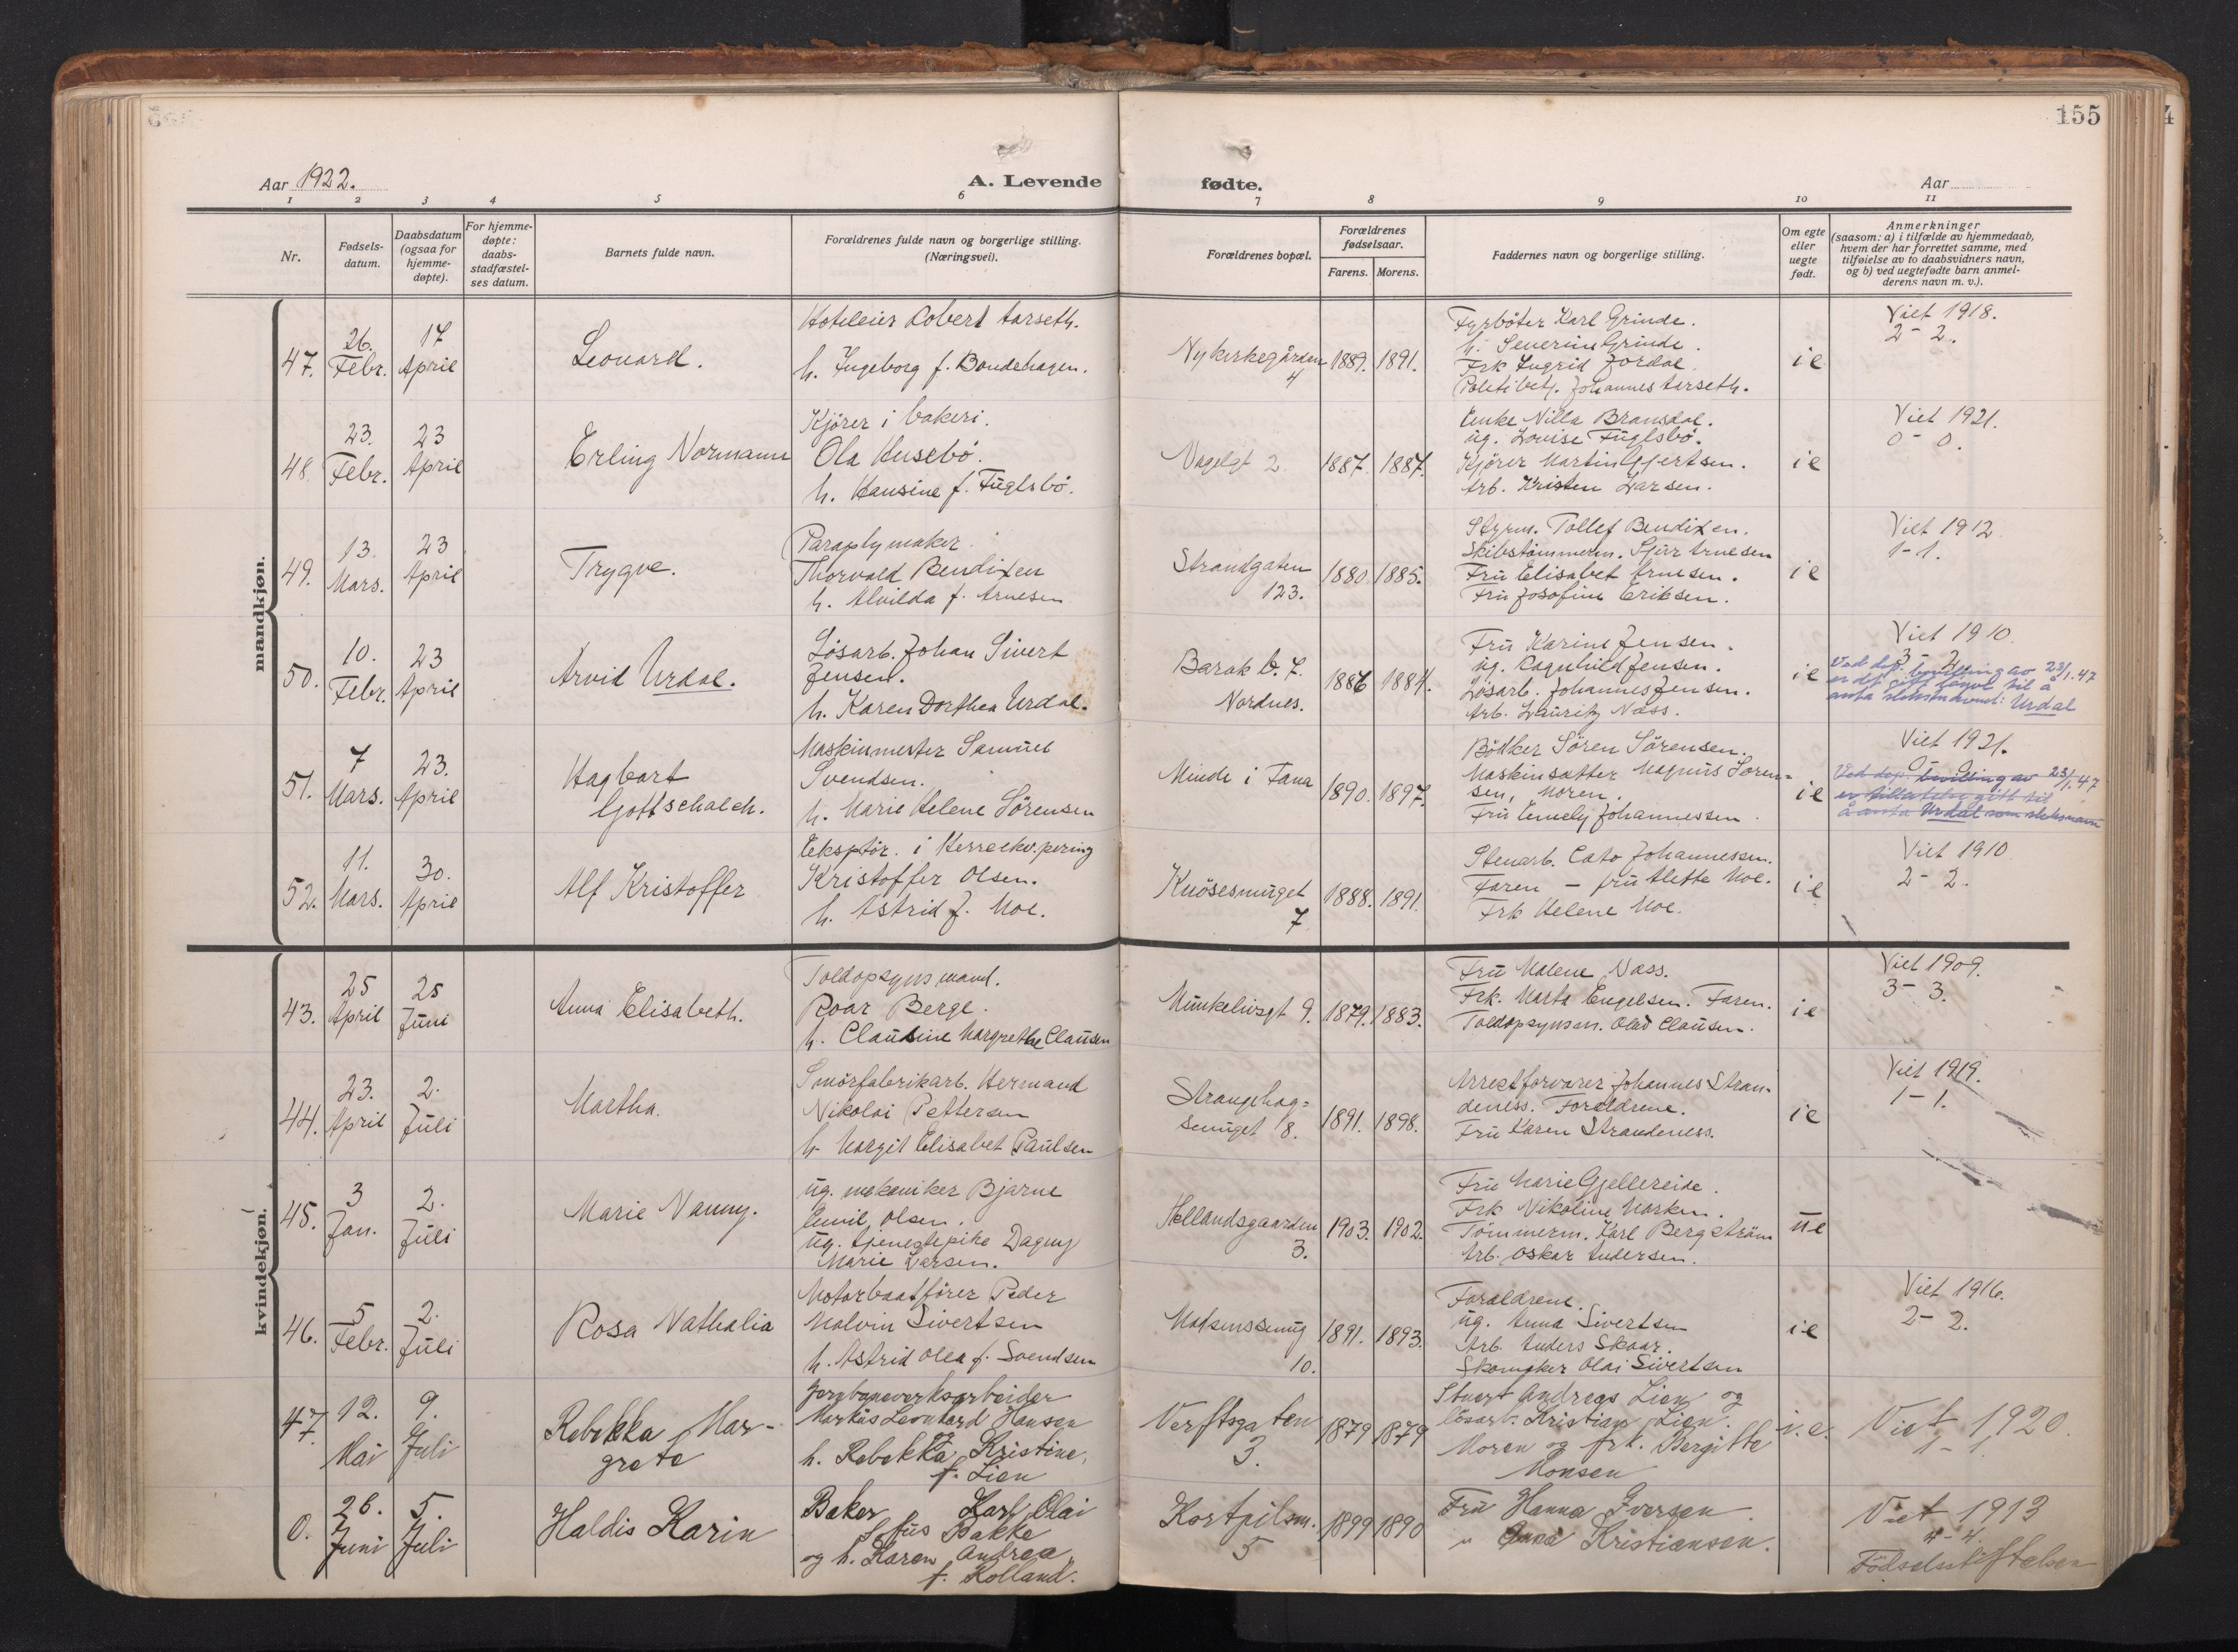 155
Aar 1922.
A. Levende
fødte.
Aar
1 2 3 4 5 6 7 8 9 10 11
Nr.
Fødsels-
datum.
Daabsdatum
(ogsaa for
hjemme-
døpte).
For hjemme-
døpte:
daabs-
stadfæstel-
ses datum.
Barnets fulde navn.
Forældrenes fulde navn og borgerlige stilling.
(Næringsvei).
Forældrenes bopæl.
Forældrenes
fødselsaar.
Farens. Morens.
Faddernes navn og borgerlige stilling.
Om egte
eller
uegte
født.
Anmerkninger
(saasom: a) i tilfælde av hjemmedaab,
hvem der har forrettet samme, med
tilføielse av to daabsvidners navn,
og b) ved uegtefødte barn anmel-
derens navn m. v.).
mandkjøn.
47.
26.
Febr.
17
April
Leonard.
Hoteleier Robert Aarseth.
h. Ingeborg f. Bondehagen.
Nykirkegården
4
1889. 1891.
Fyrbøter Karl Grinde.
h. Severine Grinde.
Frk Ingrid Jordal
Politibetj. Johannes Aarseth.
i e
Viet 1918.
2 - 2.
48.
23.
Febr.
23
April
Erling Normann
Kjörer i bakeri.
Ola Husebö.
h. Hansine f. Fuglsbö.
Nagelgt 2.
1887. 1887.
Enke Nilla Bransdal.
ug. Lovise Fuglsbö.
Kjörer Martin Gjertsen.
Arb. Kristen Larsen.
i e
Viet 1921.
0 - 0.
49.
13.
Mars.
23
April
Trygve.
Paraplymaker
Thorvald Bendixen
h. Alvilda f. Arnesen
Strandgaten
123.
1880. 1885.
Styrm. Tollef Bendixen.
Skibstömmerm. Sjur Arnesen
Fru Elisabet Arnesen.
Fru Josofine Eriksen.
i e
Viet 1912
1 - 1.
50.
10.
Febr.
23
April
Arvid Urdal.
Lösarb. Johan Sivert
Jensen.
h. Karen Dorthea Urdal.
Barak b. 7.
Nordnes.
1886 1884.
Fru Karine Jensen.
ug. Ragnhild Jensen.
Lösarb. Johannes Jensen.
Arb. Lauritz Næss.
i e
Viet 1910.
3 - 2.
Ved dep. bevilling av 23/1.47
er det gitt løyve til å
anta sleksnavnet: Urdal
51.
7
Mars.
23.
April
Hagbart
Gottschalch.
Maskinmester Samuel
Svendsen.
h. Marie Helene Sörensen
Minde i Fana
1890. 1897.
Bödker Sören Sörensen.
Maskinsætter Magnus Sören-
sen, Moren.
Fru Emely Johannessen
i e
Viet 1921.
0 - 0.
Ved dep. bevilling av 23/1.47
er tillatelse gitt til
å anta Urdal som sleksnavn
52.
11.
Mars.
30.
April
Alf Kristoffer
Eksptör. i Herreekv.pering
Kristoffer Olsen.
h. Astrid f. Moe.
Knösesmuget
7
1888. 1891.
Stenarb. Cato Johannessen.
Faren - fru Alette Moe.
Frk Helene Moe.
i e
Viet 1910
2 - 2.
kvindekjøn.
43.
25
April
25
Juni
Anna Elisabeth.
Toldopsynsmand.
Roar Berge.
h. Claudine Margrethe Clausen
Munkelivsgt 9.
1879. 1883.
Fru Malene Næss.
Frk. Marta Engelsen. Faren.
Toldopsynsm. Olav Clausen.
i e
Viet 1909.
3 - 3.
44.
23.
April
2.
Juli
Martha.
Smörfabrikarb. Hermand
Nikolai Pettersen
h. Margit Elisabet Paulsen
Strangehag-
smuget 18.
1891. 1898.
Arrestforvarer Johannes Stran-
deness. Foreldrene.
Fru Karen Strandeness.
i e
Viet 1919.
1 - 1.
45.
3
Jan.
2.
Juli
Marie Nanny.
ug. mekaniker Bjarne
Emil Olsen.
ug. tjenestepike Dagny
Marie Larsen.
Hellandsgaarden
3.
1903. 1902.
Fru Marie Gjellereide.
Frk Nikoline Marken.
Tömmerm. Karl Bergström
Arb. Oskar Andersen.
u e
46.
5
Febr.
2.
Juli
Rosa Nathalia
Motorbaatförer Peder
Malvin Sivertsen
h. Astrid Olea f. Svendsen
Madsenssmug
10.
1891. 1893.
Foreldrene.
ug. Anna Sivertsen
Arb. Anders Skaar.
Skomaker Olai Sivertsen
i e
Viet 1916.
2 - 2.
47.
12.
Mai
9.
Juli
Rebekka Mar-
grete
Jernbaneverksarbeider
Markus Leonhard Hansen
og
h. Rebekka Kristine,
f. Lien
Verftsgaten
3.
1879 1879
Stuert Andreas Lien og
lösarb. Kristian Lien.
Moren og frk. Bergitte
Monsen
i. e.
Viet 1920.
1 - 1.
0.
26.
Juni
5.
Juli
Haldis Karin
Baker Karl Olai
Sofus Bakke
og h. Karen Andrea,
f. Kolland.
Kortpilsm.
5
1899 1890
Fru Hanna Iversen.
" Anna Kristiansen.
Viet 1913
4 - 4.
Födselsstiftelsen